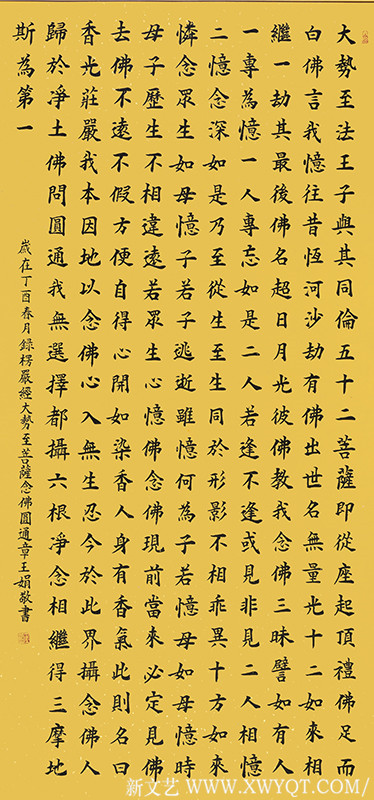 大勢至法王子與其同倫五十二菩薩即從座起頂禮佛足而
白佛言我憶往昔恆河沙劫有佛出世名無量光十二如來相
繼一劫其最後佛名超日月光彼佛教我念佛三昧譬如有人
一專為憶一人專忘如是二人若逢不逢或見非見二人相憶
二憶念深如是乃至從生至生同於形影不相乖異十方如來
憐念眾生如母憶子若子逃逝雖憶何為子若憶母如母憶時
母子歷生不相違遠若眾生心憶佛念佛現前當來必定見佛
去佛不遠不假方便自得心開如染香人身有香氣此則名曰
香光莊嚴我本因地以念佛心入無生忍今於此界攝念佛人
歸於淨土佛問圓通我無選擇都攝六根淨念相繼得三摩地
斯為第一
歲在丁酉春月錄楞嚴經大勢至菩薩念佛圓通章王娟敬書
新文艺 WWW.XWYQT.COM